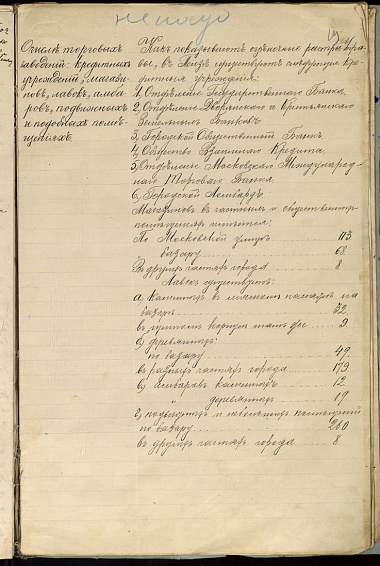 не надо
О числѣ торговыхъ
заведений: кредитныхъ
учреждений, магази-
новъ, лавокъ, амба-
ровъ, подвижныхъ
и подобныхъ помѣ-
щенияхъ.
Какъ показываютъ отдѣльные
въ существуютъ слѣдующия кре-
дитныя учреждения:
1, Отдѣление Государственнаго Банка.
2, Отдѣление Дворянскаго и Крестьянскаго
Земельныхъ Банковъ
3, Городской Общественный Банкъ
4, Общество Взаимнаго Кредита.
5, Отдѣление Московскаго Международ-
наго Торговаго Банка.
6, Городской Ломбардъ.
Магазиновъ въ частныхъ и общественныхъ
помѣщенияхъ
По Московской улицѣ 113
" базару 68
Въ другихъ частяхъ города 8
Лавокъ существуетъ:
а, каменныхъ въ пассажѣ на
базарѣ 32
въ корпусѣ тамъ же 9
б, деревянныхъ:
по базару 49
въ разныхъ частяхъ города 179
в, амбаровъ каменныхъ 12
" деревянныхъ 19
г, подвижныхъ и небольшихъ помѣщений
по базару 260
въ другихъ частяхъ города 8